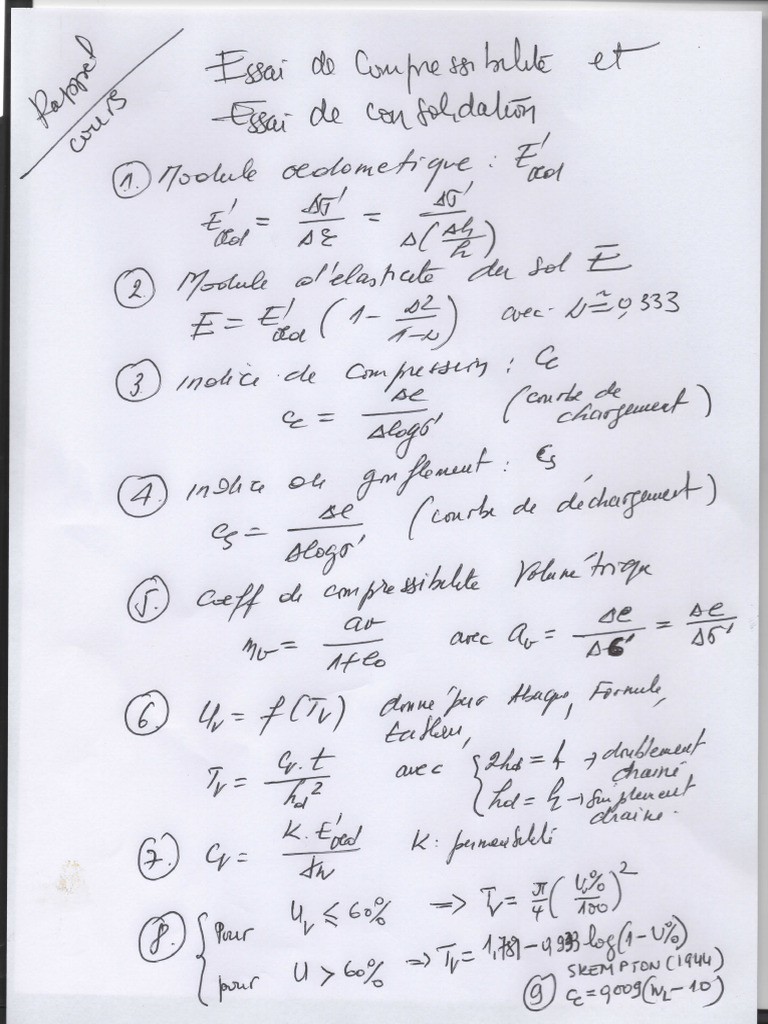 Rappel
cours
Essai de Compressibilité et
Essai de consolidation
1. Module oedometrique : E'oed
E'oed = Δσ'/Δε = Δσ'/Δ(Δh/h)
2. Module d'elasticite du sol E
E = E'oed (1 - 2ν²/(1-ν)) avec ν ≃ 0,333
3. indice de compression : Cc
Cc = Δe/Δlogσ' (courbe de chargement)
4. indice de gonflement : Cs
Cs = Δe/Δlogσ' (courbe de déchargement)
5. Coeff de compressibilité Volumétrique
mv = av/(1+e0) avec av = Δe/Δσ' = Δe/Δσ'
6 Uv = f(Tv) donné par Abaque, Formule,
tableau,
Tv = Cv.t/hd² avec { 2hd = h → doublement drainé
hd = h → simplement draine.
7. Cv = K.E'oed/γw K: perméabilité
8. { Pour Uv ≤ 60% ⇒ Tv = π/4 (Uv%/100)²
pour U > 60% ⇒ Tv = 1,781 - 0,933 log(1-U%)
9 SKEMPTON (1944)
Cc = 0,009 (WL - 10)